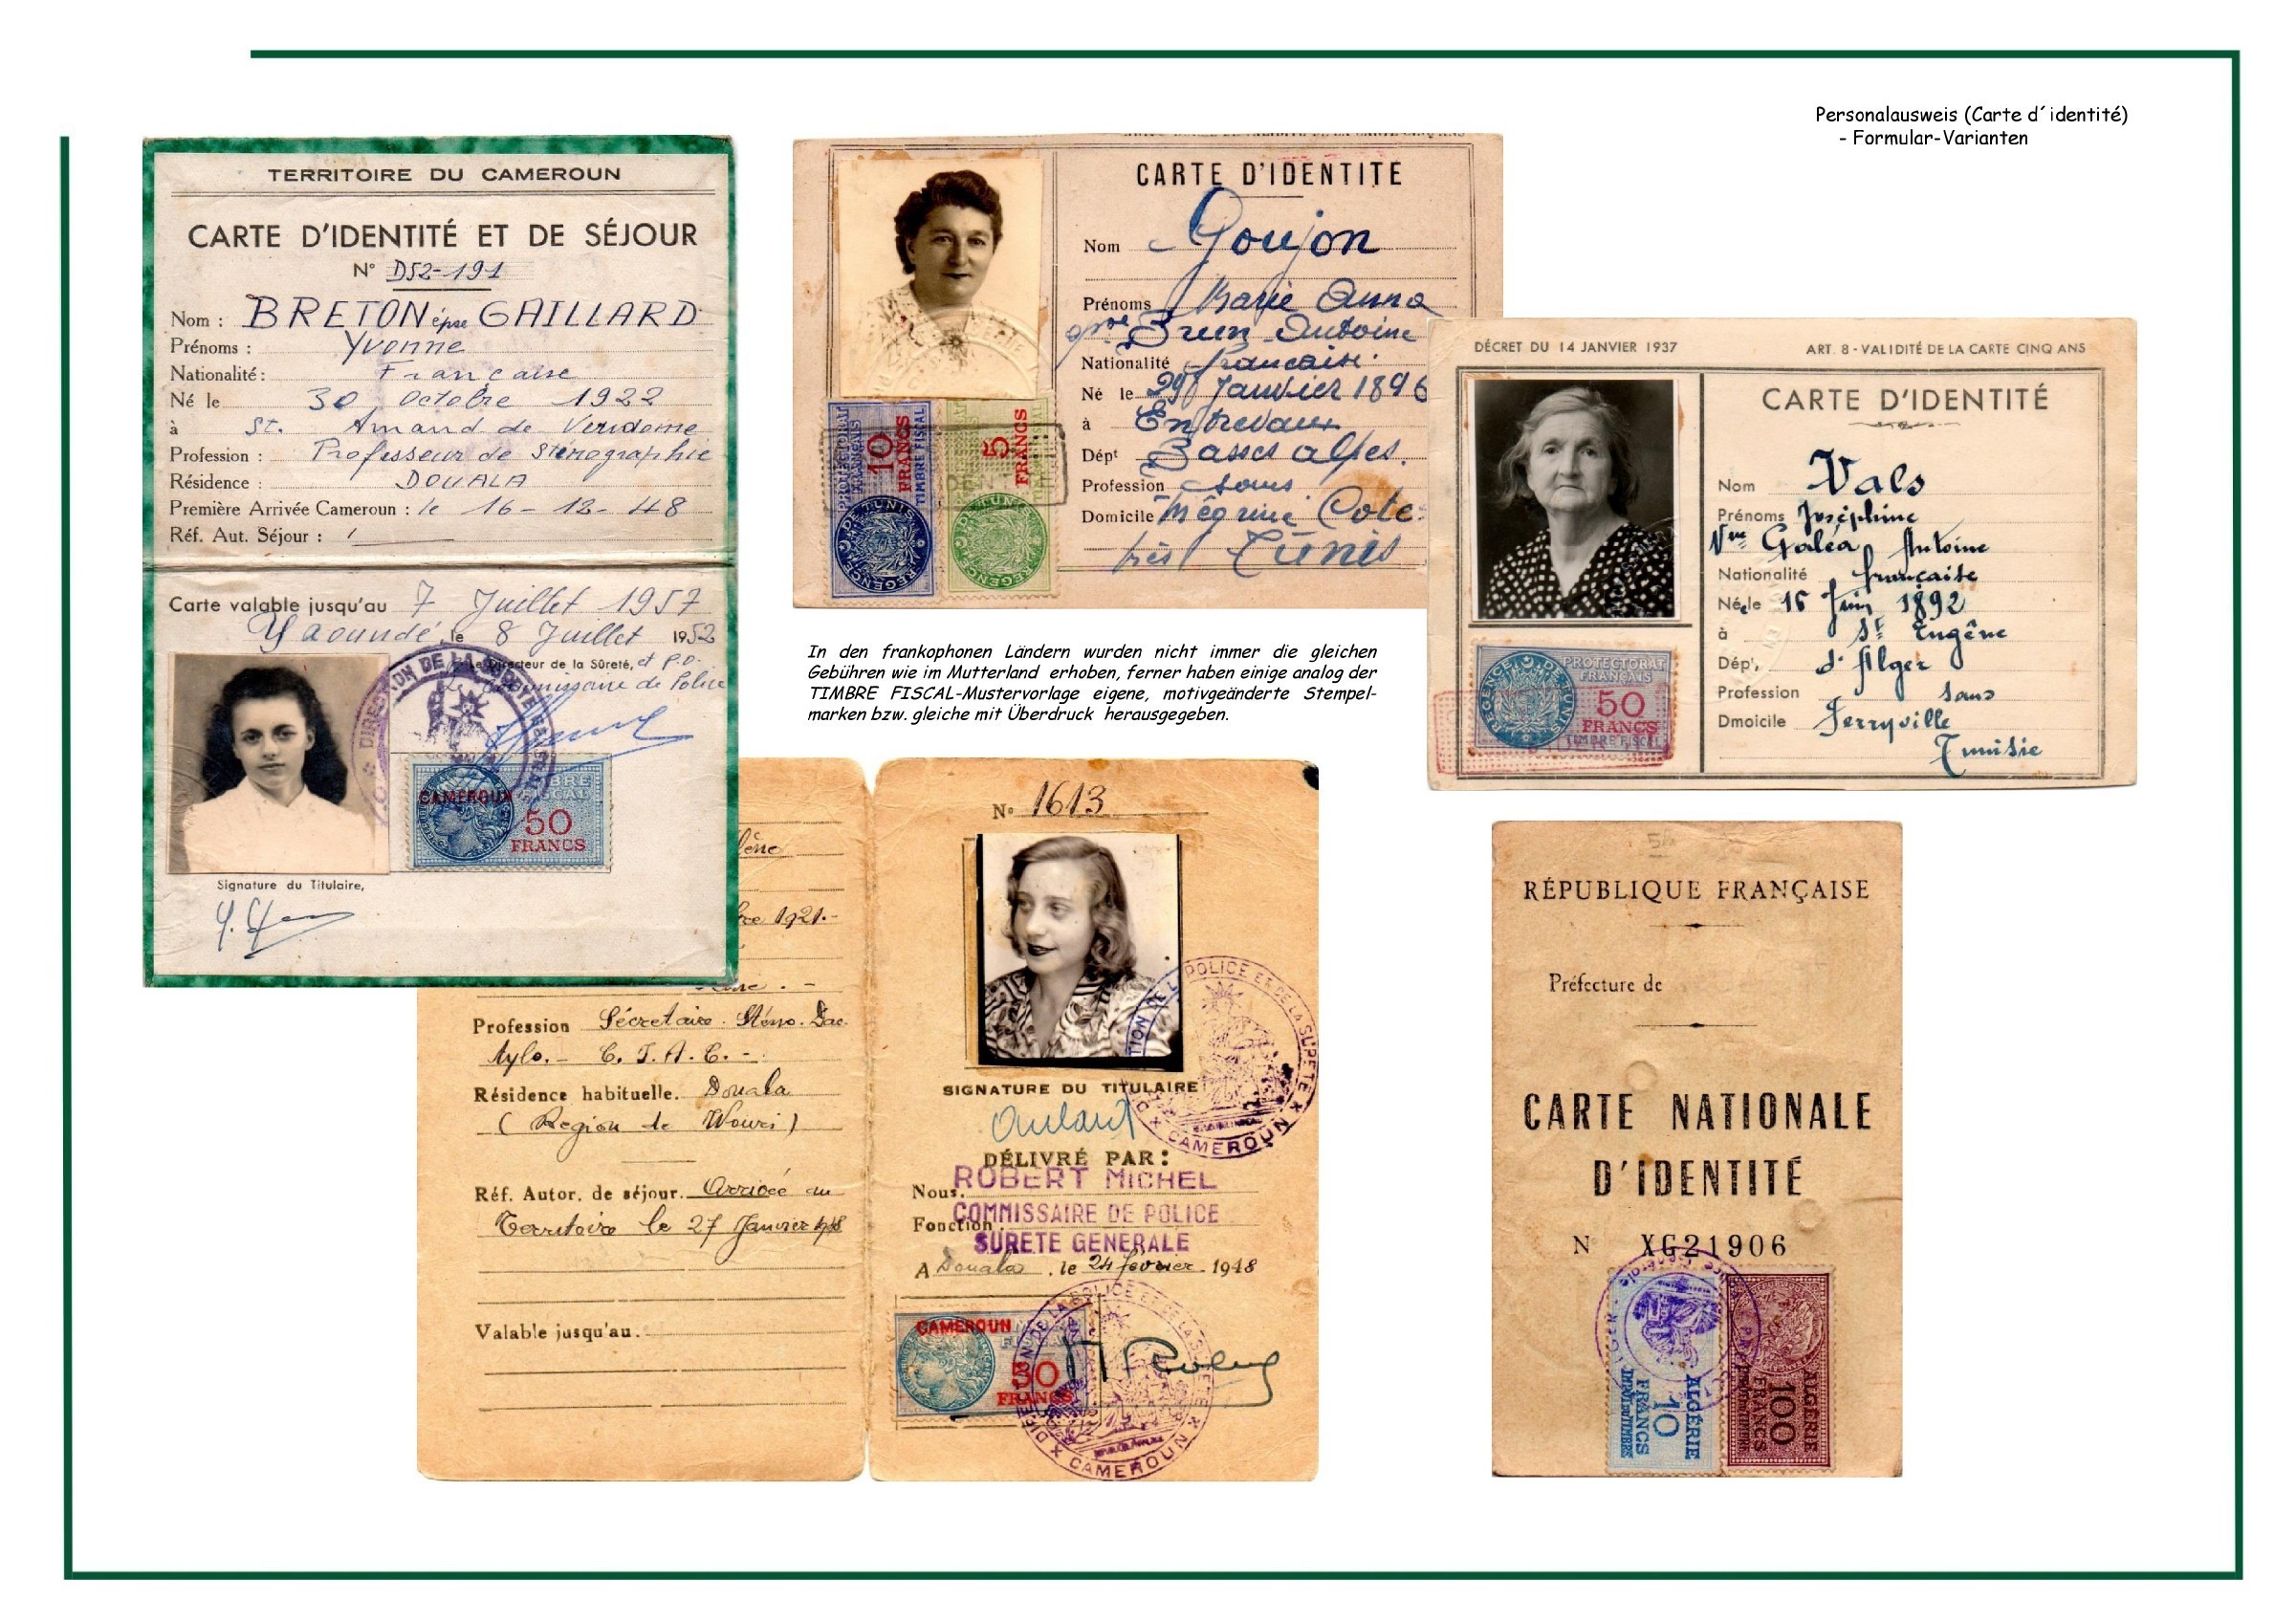 Personalausweis (Carte d´identité)
- Formular-Varianten
TERRITOIRE DU CAMEROUN
CARTE D'IDENTITÉ ET DE SÉJOUR
N° D52-191
Nom : BRETON épse GAILLARD
Prénoms : Yvonne
Nationalité : Française
Né le 30 Octobre 1922
à St. Amand de Vendome
Profession : Professeur de Sténographie
Résidence : DOUALA
Première Arrivée Cameroun : le 16-12-48
Réf. Aut. Séjour : /
Carte valable jusqu'au 7 Juillet 1957
Yaoundé, le 8 Juillet 1952
Le Directeur de la Sûreté, et p.o.
le Commissaire de Police
CAMEROUN
TIMBRE
FISCAL
50
FRANCS
Signature du Titulaire,
CARTE D'IDENTITE
Nom Goujon
Prénoms Marie Anna
Brun Antoine
Nationalité française.
Né le 29 Janvier 1896
à Entrevaux
Dépt Basses alpes.
Profession sans
Domicile Mégrine Cote
près Tunis
PROTECTORAT
FRANÇAIS
10
FRANCS
TIMBRE FISCAL
REGENCE DE TUNIS
5
FRANCS
REGENCE DE TUNIS
DÉCRET DU 14 JANVIER 1937
ART. 8 - VALIDITÉ DE LA CARTE CINQ ANS
CARTE D'IDENTITÉ
Nom Vals
Prénoms Joséphine
Vve Galéa Antoine
Nationalité française
Née le 16 Juin 1892
à St Eugêne
Dépt, d'Alger
Profession sans
Dmoicile Ferryville
Tunisie
REGENCE DE TUNIS
PROTECTORAT
FRANÇAIS
50
FRANCS
TIMBRE FISCAL
In den frankophonen Ländern wurden nicht immer die gleichen
Gebühren wie im Mutterland erhoben, ferner haben einige analog der
TIMBRE FISCAL-Mustervorlage eigene, motivgeänderte Stempel-
marken bzw. gleiche mit Überdruck herausgegeben.
bre 1921.-
Profession Sécretaire. Sténo. Dac.
tylo.- C.T.A.C.-
Résidence habituelle. Douala
(Région de Wouri)
Réf. Autor. de séjour. Arrivée au
Territoire le 27 Janvier 1948
Valable jusqu'au.
N° 1613
SIGNATURE DU TITULAIRE
DÉLIVRÉ PAR:
Nous. ROBERT MICHEL
Fonction. COMMISSAIRE DE POLICE
SURETE GENERALE
A Douala, le 24 février 1948
DIRECTION DE LA POLICE ET DE LA SURETE
CAMEROUN
CAMEROUN
50
FRANCS
DIRECTION DE LA POLICE ET DE LA SURETE
CAMEROUN
RÉPUBLIQUE FRANÇAISE
Préfecture de
CARTE NATIONALE
D'IDENTITÉ
N XG21906
ALGÉRIE
10
FRANCS
IMPÔT DU TIMBRE
ALGÉRIE
100
FRANCS
IMPÔT DU TIMBRE